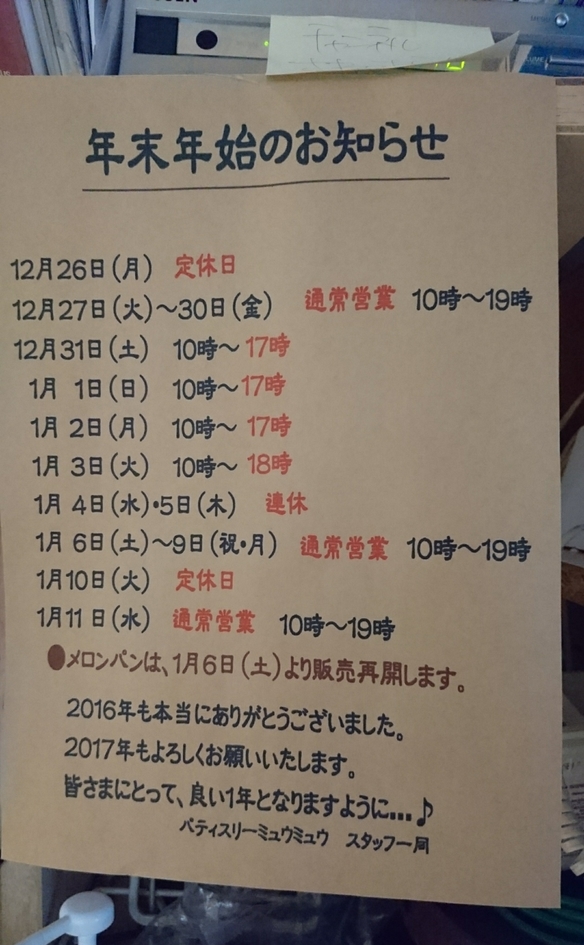 年末年始のお知らせ
12月26日(月) 定休日
12月27日(火)〜30日(金) 通常営業 10時〜19時
12月31日(土) 10時〜17時
1月 1日(日) 10時〜17時
1月 2日(月) 10時〜17時
1月 3日(火) 10時〜18時
1月 4日(水)・5日(木) 連休
1月 6日(土)〜9日(祝・月) 通常営業 10時〜19時
1月10日(火) 定休日
1月11日(水) 通常営業 10時〜19時
●メロンパンは、1月6日(土)より販売再開します。
2016年も本当にありがとうございました。
2017年もよろしくお願いいたします。
皆さまにとって、良い1年となりますように…♪
パティスリーミュウミュウ スタッフ一同